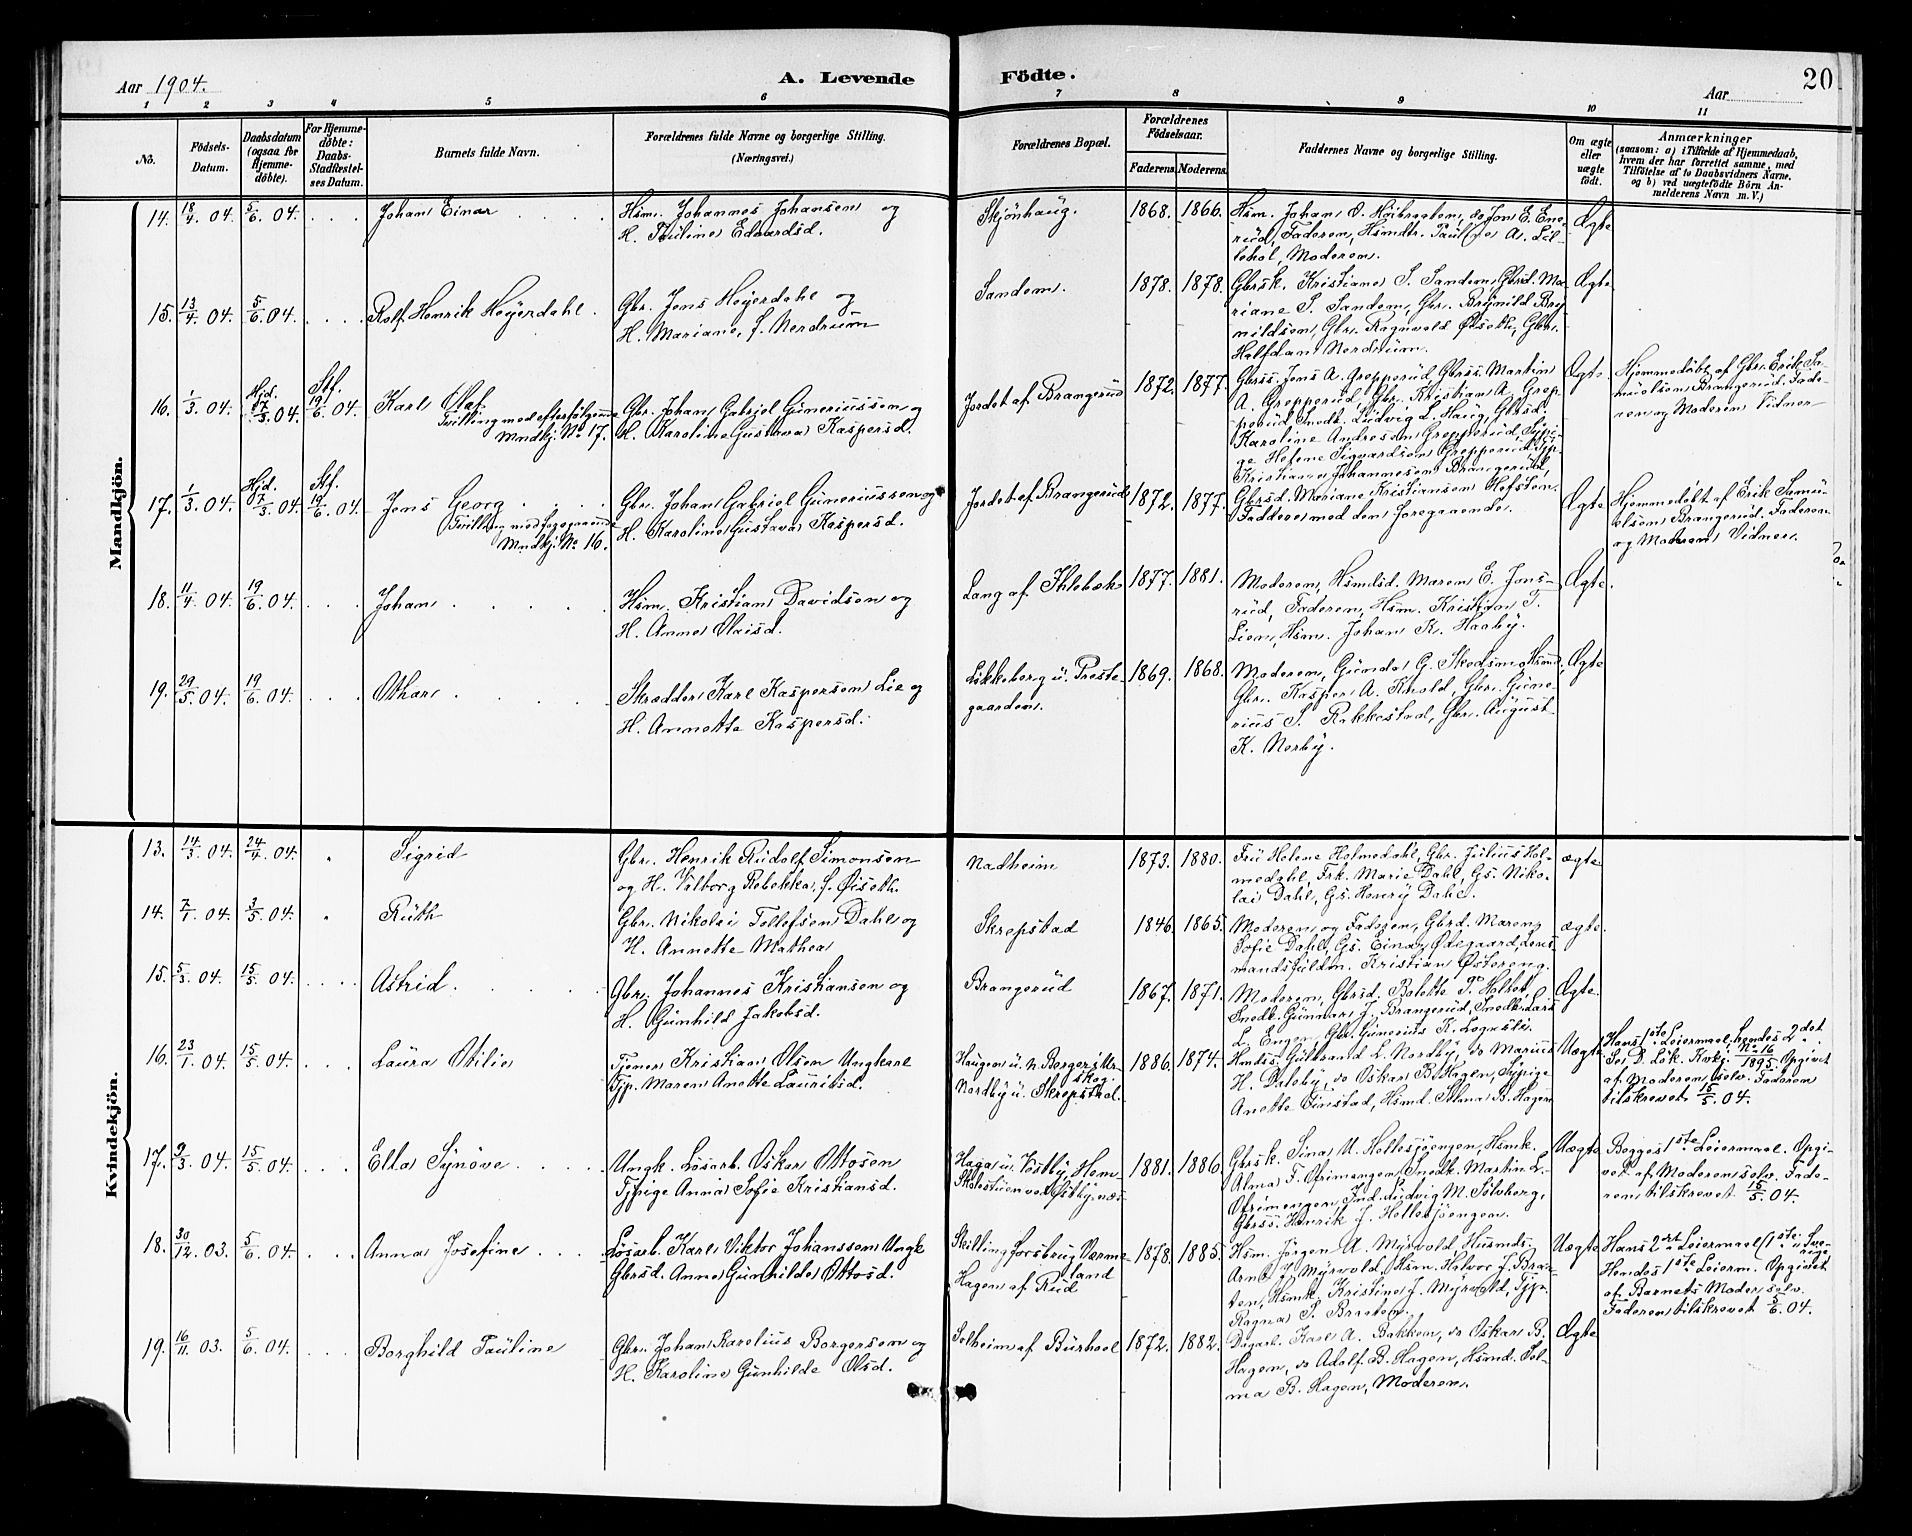 Aar 1904.
A. Levende Födte.
Aar
20
1 2 3 4 5 6 7 8 9 10 11
No.
Födsels-Datum.
Daabsdatum (ogsaa for Hjemme-döbte).
For Hjemme-döbte: Daabs-Stadfæstel-ses Datum.
Barnets fulde Navn.
Forældrenes fulde Navne og borgerlige Stilling.
(Næringsvei.)
Forældrenes Bopæl.
Forældrenes Födselsaar.
Faderens. Moderens.
Faddernes Navne og borgerlige Stilling.
Om ægte eller uægte födt.
Anmærkninger
(saasom: a) i Tilfælde af Hjemmedaab, hvem der har forrettet samme, med Tilföielse af to Daabsvidners Navne. og b) ved uægtefödte Börn An-melderens Navn m. V.)
Mandkjön.
14. 18/4 04. 5/6 04. Johan Einar
Hsm. Johannes Johansen og
H. Pauline Edvardsd.
Skjönhaug. 1868. 1866.
Hsm. Johan O. Höibraaten, do Jon E. Ene-
rud, Faderen, Hsmdtr. Paul[ine] A. Lil-
lehol, Moderen.
Ægte
15. 13/4 04. 5/6 04. Rolf Henrik Heyerdahl.
Gbr. Jens Heyerdahl og
H. Mariane, f. Nerdrum
Sandem. 1878. 1878.
Gbrsk. Kristiane S. Sandem, Gbrsd. Ma-
riane S. Sandem, Gbr. Brynild Bry-
nildsen, Gbr. Ragnvald Øiseth, Gbr.
Halfdan Nerdrum.
Ægte
16. 1/3 04. Hjd. 17/3 04. Stf. 19/6 04. Karl Olaf
Tvilling med efterfölgende
Mndkj. No 17.
Gbr. Johan Gabriel Guneriussen og
H. Karoline Gustava Kaspersd.
Jordet af Brangerud 1872. 1877.
Gbrss. Jens A. Grepperud, Gbrss. Martin
A. Grepperud, Gbr. Kristian A. Grep-
perud, Snedk. Ludvig L. Haug, Gbrsd.
Karoline Andresen Grepperud, Sypi-
ge Helene Sigvardsen Grepperud, Tjp.
Kristiane Johannesen Brangerud,
Gbrsd. Mariane Kristiansen Hofsten.
Ægte.
Hjemmedöbt af Gbr. Erik Sa-
muelsen Brangerud. Fade-
ren og Moderen Vidner
17. 1/3 04. Hjd. 17/3 04. Stf. 19/6 04. Jens Georg
Tvilling med foregaaende
Mndkj. No 16.
Gbr. Johan Gabriel Guneriussen og
H. Karoline Gustava Kaspersd.
Jordet af Brangerud 1872. 1877.
Faddere med den foregaaende.
Ægte
Hjemmedöbt af Erik Samu-
elsen Brangerud. Faderen
og Moderen Vidner.
18. 11/4 04. 19/6 04. Johan
Hsm. Kristian Davidsen og
H. Anne Olaisd.
Lang af Ihlebæk 1877. 1881.
Moderen, Hsmdsd. Maren E. Jons-
rud, Faderen, Hsm. Kristian T.
Lien, Hsm. Johan K. Haaby.
Ægte.
19. 29/5 04. 19/6 04. Othar
Skrædder Karl Kaspersen Lie og
H. Annette Kaspersd.
Lökkeberg u. Preste-
gaarden. 1869. 1868.
Moderen, Gunda G. Skodsmo Hsmd,
Gbr. Kasper A. Krold, Gbr. Gune-
rius S. Rakkestad, Gbr. August
K. Nerby.
Ægte
Kvindekjön.
13. 14/3 04. 24/4 04. " Sigrid
Gbr. Henrik Rudolf Simonsen
og H. Vilborg Rebekka, f. Øiseth.
Nadheim 1873. 1880.
Fru Helene Holmedahl, Gbr. Julius Hol-
medahl, Frk. Marie Dahl, Gs. Niko-
lai Dahl, Gs. Henry Dahl.
ægte.
14. 7/1 04. 3/5 04. " Ruth
Gbr. Nikolai Tollefsen Dahl og
H. Annette Mathea
Skrepstad 1846. 1865.
Moderen og Faderen, Gbrd. Maren
Sofie Dahl, Gs. Einar Ødegaard, Lens-
mandsfuldm. Kristian Østereng.
ægte.
15. 5/3 04. 15/5 04. Astrid.
Gbr. Johannes Kristiansen og
H. Gunhild Jakobsd.
Brangerud 1867. 1871.
Moderen, Gbrsd. Bolette P. Holtet,
Snedk. Gunnar J. Brangerud, Snedk. Lars
L. Engen, Gbr. Gunerius K. Lognsli.
Ægte.
16. 23/1 04. 15/5 04. Laura Otilie
Tjener Kristian Olsen Ungkarl
Tjp. Maren Anette Lauritsd.
Haugen u. n. Borgersætr.
skog.
Nordby u. Skrepsthol. 1886. 1874.
Hmdss. Gulbrand L. Nordby, do Marius
H. Daleby, do Oskar B. Hagen, Sypige
Anette Finstad, Hsmd. Selma B. Hagen
Uægte
Hans 1ste Leiermaal, hendes 2det.
Se D. Lsk. Kvkj. No 16 1895. Opgivet
af Moderen selv. Faderen
tilskrevet 15/5 04.
17. 9/3 04. 15/5 04. Ella Synöve
Ungk. Lösarb. Oskar Ottosen
Tjpige Anna Sofie Kristiansd.
Haga u. Vestby, Hem
Skolestuen ved Østby nes 1881. 1886.
Gbrsk. Sina U. Hallesjöengen, Hsmk.
Alma F. Ofrimengen, Snedk. Martin L.
Ofrimengen, Ind. Ludvig M. Solberg,
Gbrss. Henrik J. Hellesjöengen.
Uægte
Begges 1ste Leiermaal. Opgi-
vet af Moderen selv. Fade-
ren tilskrevet 15/5 04.
18. 30/12 03. 5/6 04. Anna Josefine
Lösarb. Karl Viktor Johanssen Ungk
Gbrsd. Anne Gunhilde Ottosd.
Skillingforsbrug Værme-
land
Hagen af Rud 1878. 1885.
Hsm. Jörgen A. Myrvold, Husmds.
Arne J. Myrvold, Hsm. Halvor J. Braa-
ten, Hsmk. Kristine J. Myrvold, Tjp.
Ragna S. Braaten.
Uægte
Hans 2det Leiermaal (1ste i Sve-
rige)
Hendes 1ste Leierm. Opgivet
af Barnets Moder selv.
Faderen tilskrevet 5/6 04.
19. 16/11 03. 5/6 04. Borghild Pauline
Gbr. Johan Karelius Borgersen og
H. Karoline Gunhilde Olsd.
Solheim af Burhoel 1872. 1882.
Dagarb. Karl A. Bakken, do Oskar B.
Hagen, do Adolf B. Hagen, Hsmd. Sel-
ma B. Hagen, Moderen.
Ægte